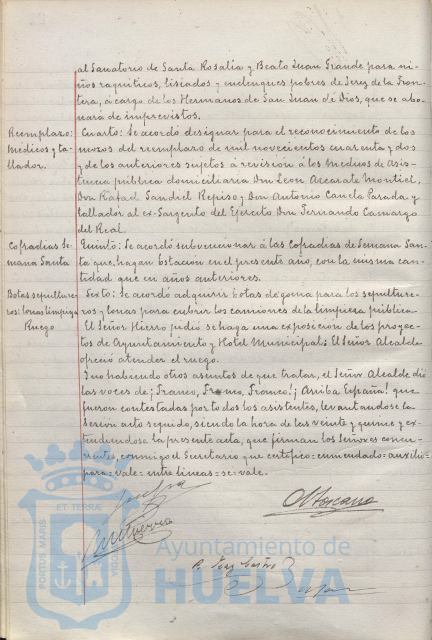 al Sanatorio de Santa Rosalía y Beato Juan Grande para ni-
ños raquíticos, lisiados y enclenques pobres de Jerez de la Fron-
tera, á cargo de los Hermanos de San Juan de Dios, que se abo-
nará de imprevistos.
Reemplazo:
Médicos y ta-
llador.
Cuarto: Se acordó designar para el reconocimiento de los
mozos del reemplazo de mil novecientos cuarenta y dos
y de los anteriores sujetos á revisión á los Médicos de Asis-
tencia pública domiciliaria Don Leon Azcarate Montiel,
Don Rafael Sandiel Repiso y Don Antonio Canela Parada y
tallador al ex-Sargento del Ejercito Don Fernando Camargo
del Real.
Cofradias Se-
mana Santa
Quinto: Se acordó subvencionar á las Cofradias de Semana San-
ta que hagan Estación en el presente año, con la misma can-
tidad que en años anteriores.
Botas sepulture-
ros: lonas limpieza
Ruego
Sexto: Se acordó adquirir botas de goma para los sepulture-
ros y lonas para cubrir los camiones de la limpieza pública.
El Señor Hierro pidió se haga una exposición de los proyec-
tos de Ayuntamiento y Hotel Municipal; El Señor Alcalde
ofreció atender el ruego.
Y no habiendo otros asuntos de que tratar, el Señor Alcalde dió
las voces de ¡Franco, Franco, Franco!, ¡Arriba España! que
fueron contestadas por todos los asistentes, levantandose la
Sesión acto seguido, siendo la hora de las veinte y quince y ex-
tendiendose la presente acta, que firman los Señores concu-
rrentes, conmigo el Secretario que certifico=enmendado=auxilio-
para=vale=entre lineas=se=vale.
PORTUS MARIS
ET TERRÆ
CUSTODIA
Ayuntamiento de
HUELVA